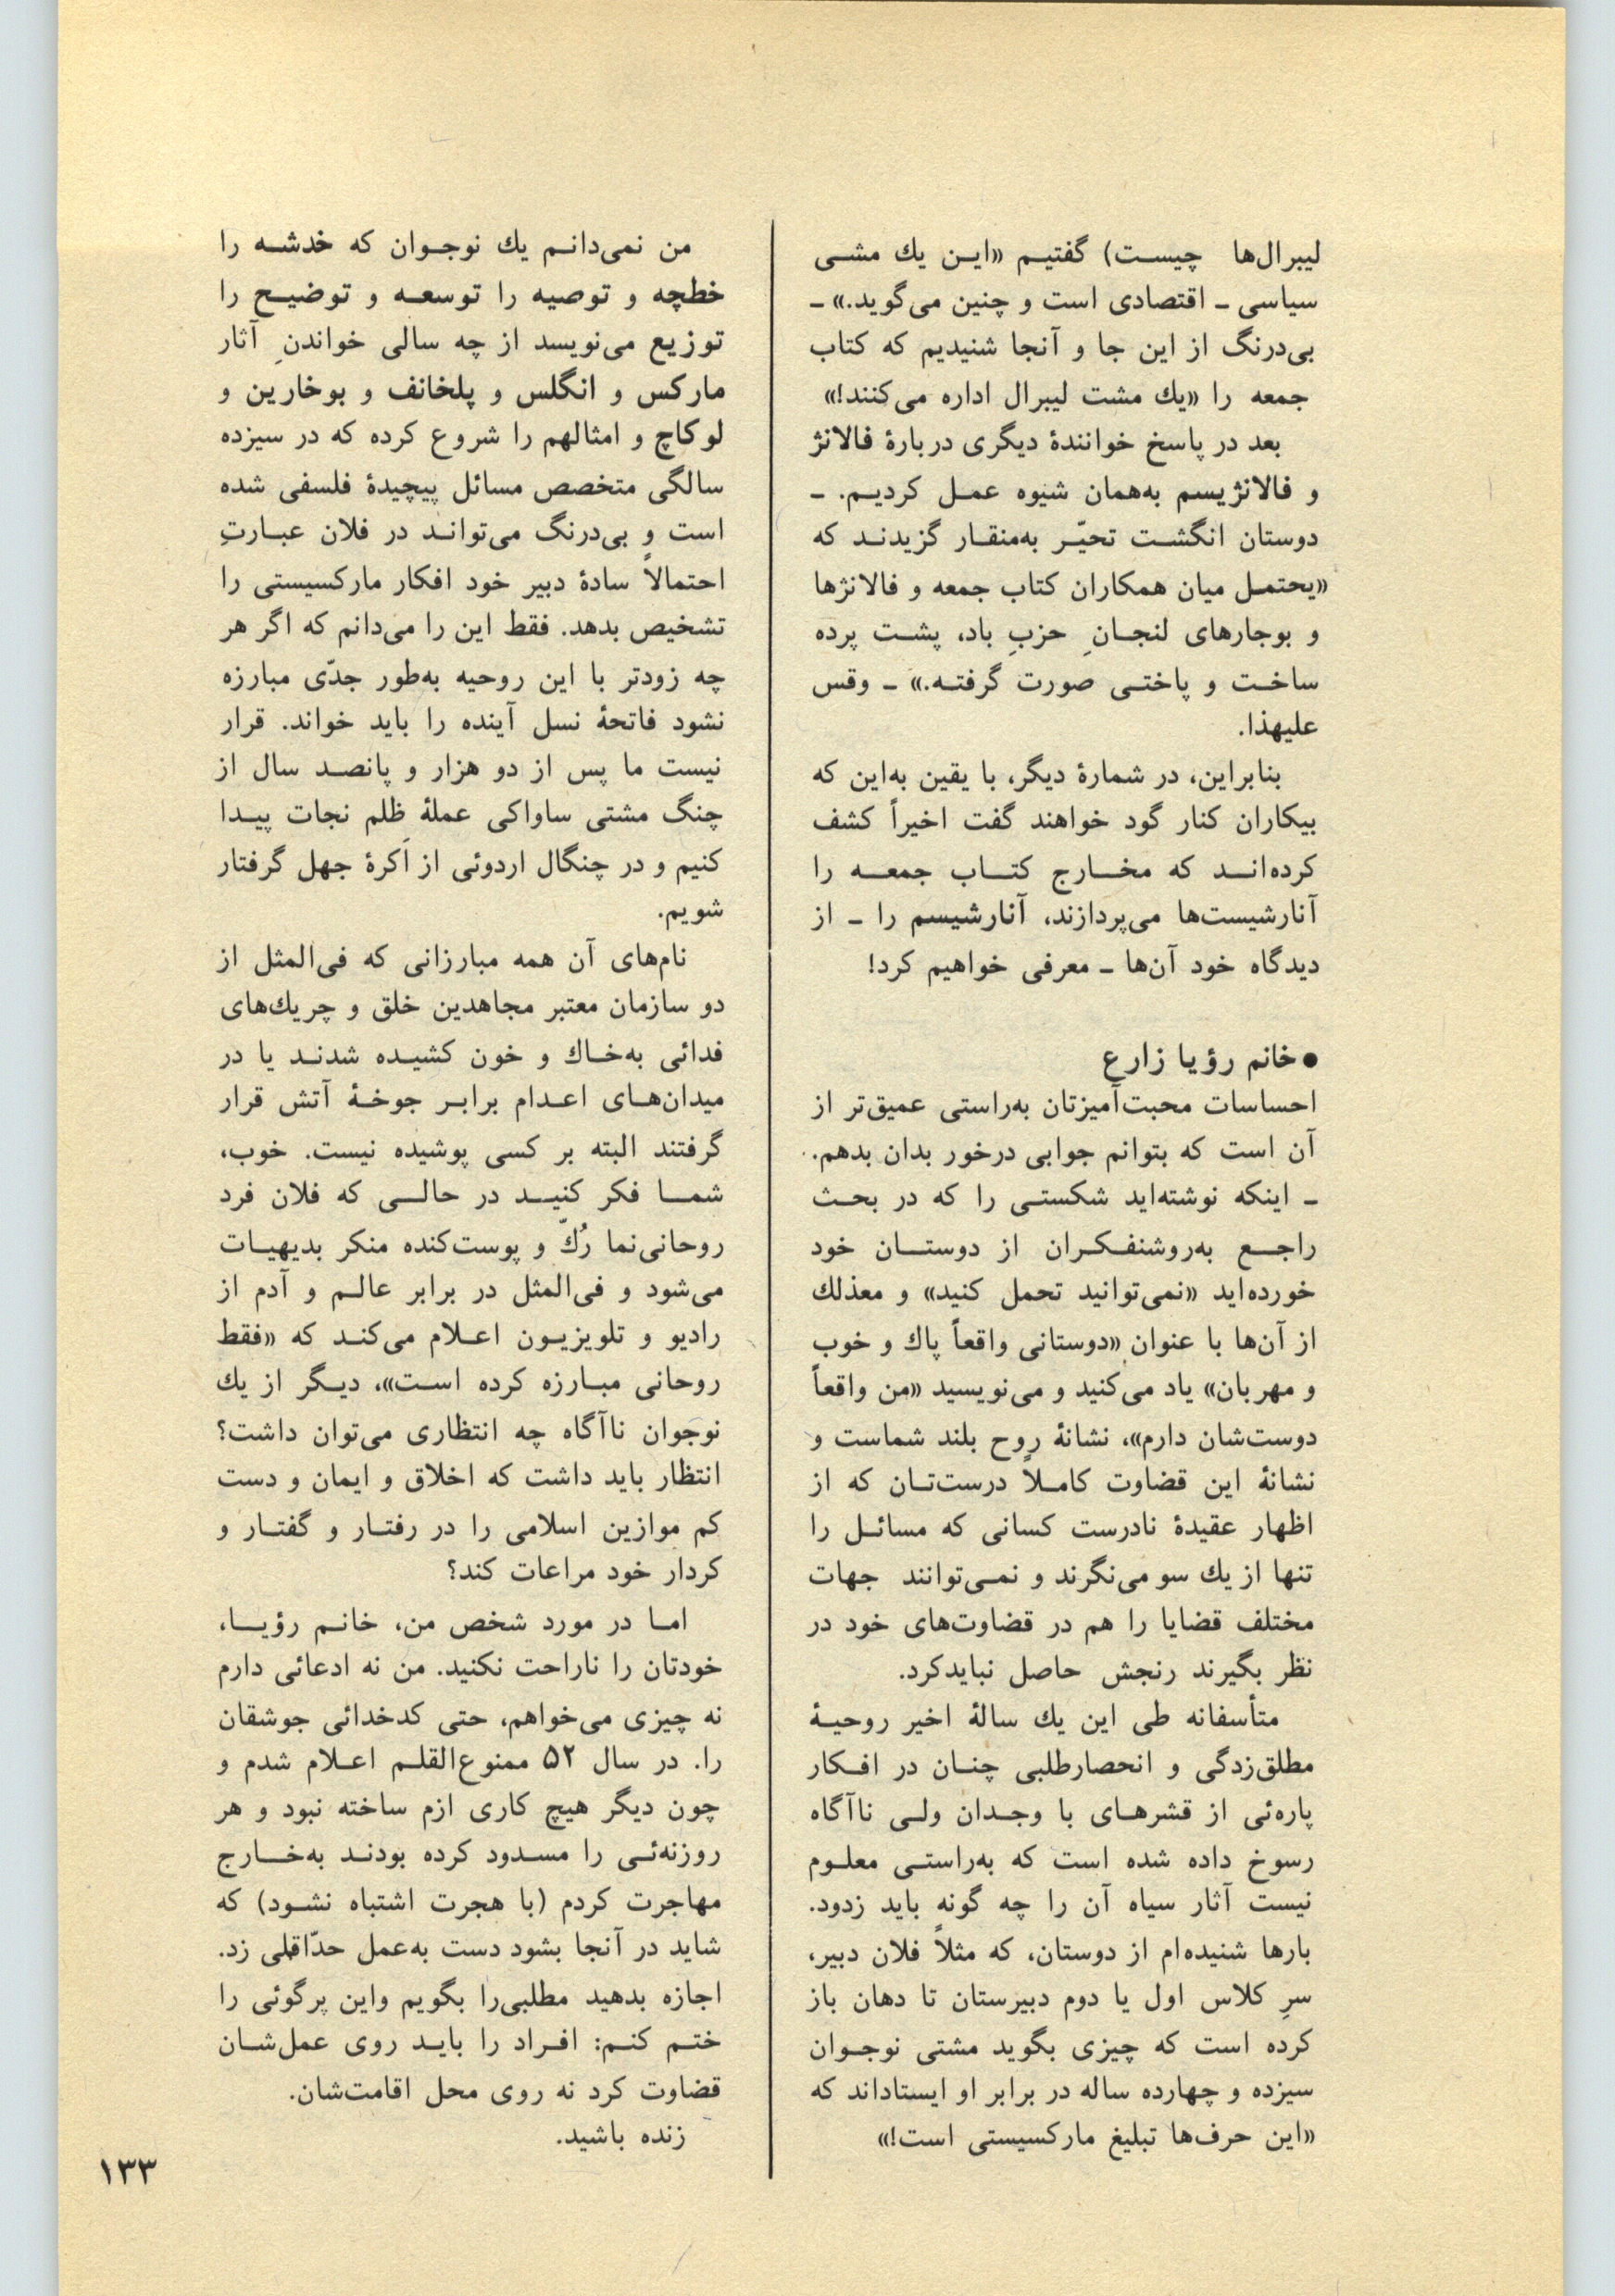 لیبرال‌ها چیست) گفتیم «این یك مشی
سیاسی ـ اقتصادی است و چنین می‌گوید.» ـ
بی‌درنگ از این جا و آنجا شنیدیم که کتاب
جمعه را «یك مشت لیبرال اداره می‌کنند!»
بعد در پاسخ خوانندهٔ دیگری دربارهٔ فالانژ
و فالانژیسم به‌همان شیوه عمل کردیم. ـ
دوستان انگشت تحیّر به‌منقار گزیدند که
«یحتمل میان همکاران کتاب جمعه و فالانژها
و بوجارهای لنجانِ حزبِ باد، پشت پرده
ساخت و پاختی صورت گرفته.» ـ وقس
علیهذا.
بنابراین، در شمارهٔ دیگر، با یقین به‌این که
بیکاران کنار گود خواهند گفت اخیراً کشف
کرده‌اند که مخارج کتاب جمعه را
آنارشیست‌ها می‌پردازند، آنارشیسم را ـ از
دیدگاه خود آن‌ها ـ معرفی خواهیم کرد!
● خانم رؤیا زارع
احساسات محبت‌آمیزتان به‌راستی عمیق‌تر از
آن است که بتوانم جوابی درخور بدان بدهم.
ـ اینکه نوشته‌اید شکستی را که در بحث
راجع به‌روشنفکران از دوستان خود
خورده‌اید «نمی‌توانید تحمل کنید» و معذلك
از آن‌ها با عنوان «دوستانی واقعاً پاك و خوب
و مهربان» یاد می‌کنید و می‌نویسید «من واقعاً
دوست‌شان دارم»، نشانهٔ روح بلند شماست و
نشانهٔ این قضاوت کاملاً درست‌تان که از
اظهار عقیدهٔ نادرست کسانی که مسائل را
تنها از یك سو می‌نگرند و نمی‌توانند جهات
مختلف قضایا را هم در قضاوت‌های خود در
نظر بگیرند رنجش حاصل نبایدکرد.
متأسفانه طی این یك سالهٔ اخیر روحیهٔ
مطلق‌زدگی و انحصارطلبی چنان در افکار
پاره‌ئی از قشرهای با وجدان ولی ناآگاه
رسوخ داده شده است که به‌راستی معلوم
نیست آثار سیاه آن را چه گونه باید زدود.
بارها شنیده‌ام از دوستان، که مثلاً فلان دبیر،
سرِ کلاس اول یا دوم دبیرستان تا دهان باز
کرده است که چیزی بگوید مشتی نوجوان
سیزده و چهارده ساله در برابر او ایستاداند که
«این حرف‌ها تبلیغ مارکسیستی است!»
من نمی‌دانم یك نوجوان که خدشه را
خطچه و توصیه را توسعه و توضیح را
توزیع می‌نویسد از چه سالی خواندنِ آثار
مارکس و انگلس و پلخانف و بوخارین و
لوکاچ و امثالهم را شروع کرده که در سیزده
سالگی متخصص مسائل پیچیدهٔ فلسفی شده
است و بی‌درنگ می‌تواند در فلان عبارتِ
احتمالاً سادهٔ دبیر خود افکار مارکسیستی را
تشخیص بدهد. فقط این را می‌دانم که اگر هر
چه زودتر با این روحیه به‌طور جدّی مبارزه
نشود فاتحهٔ نسل آینده را باید خواند. قرار
نیست ما پس از دو هزار و پانصد سال از
چنگ مشتی ساواکی عملهٔ ظلم نجات پیدا
کنیم و در چنگال اردوئی از اَکرهٔ جهل گرفتار
شویم.
نام‌های آن همه مبارزانی که فی‌المثل از
دو سازمان معتبر مجاهدین خلق و چریك‌های
فدائی به‌خاك و خون کشیده شدند یا در
میدان‌های اعدام برابر جوخهٔ آتش قرار
گرفتند البته بر کسی پوشیده نیست. خوب،
شما فکر کنید در حالی که فلان فرد
روحانی‌نما رُكّ و پوست‌کنده منکر بدیهیات
می‌شود و فی‌المثل در برابر عالم و آدم از
رادیو و تلویزیون اعلام می‌کند که «فقط
روحانی مبارزه کرده است»، دیگر از یك
نوجوان ناآگاه چه انتظاری می‌توان داشت؟
انتظار باید داشت که اخلاق و ایمان و دست
کم موازین اسلامی را در رفتار و گفتار و
کردار خود مراعات کند؟
اما در مورد شخص من، خانم رؤیا،
خودتان را ناراحت نکنید. من نه ادعائی دارم
نه چیزی می‌خواهم، حتی کدخدائی جوشقان
را. در سال ۵۲ ممنوع‌القلم اعلام شدم و
چون دیگر هیچ کاری ازم ساخته نبود و هر
روزنه‌ئی را مسدود کرده بودند به‌خارج
مهاجرت کردم (با هجرت اشتباه نشود) که
شاید در آنجا بشود دست به‌عمل حدّاقلی زد.
اجازه بدهید مطلبی‌را بگویم واین پرگوئی را
ختم کنم: افراد را باید روی عمل‌شان
قضاوت کرد نه روی محل اقامت‌شان.
زنده باشید.
۱۳۳